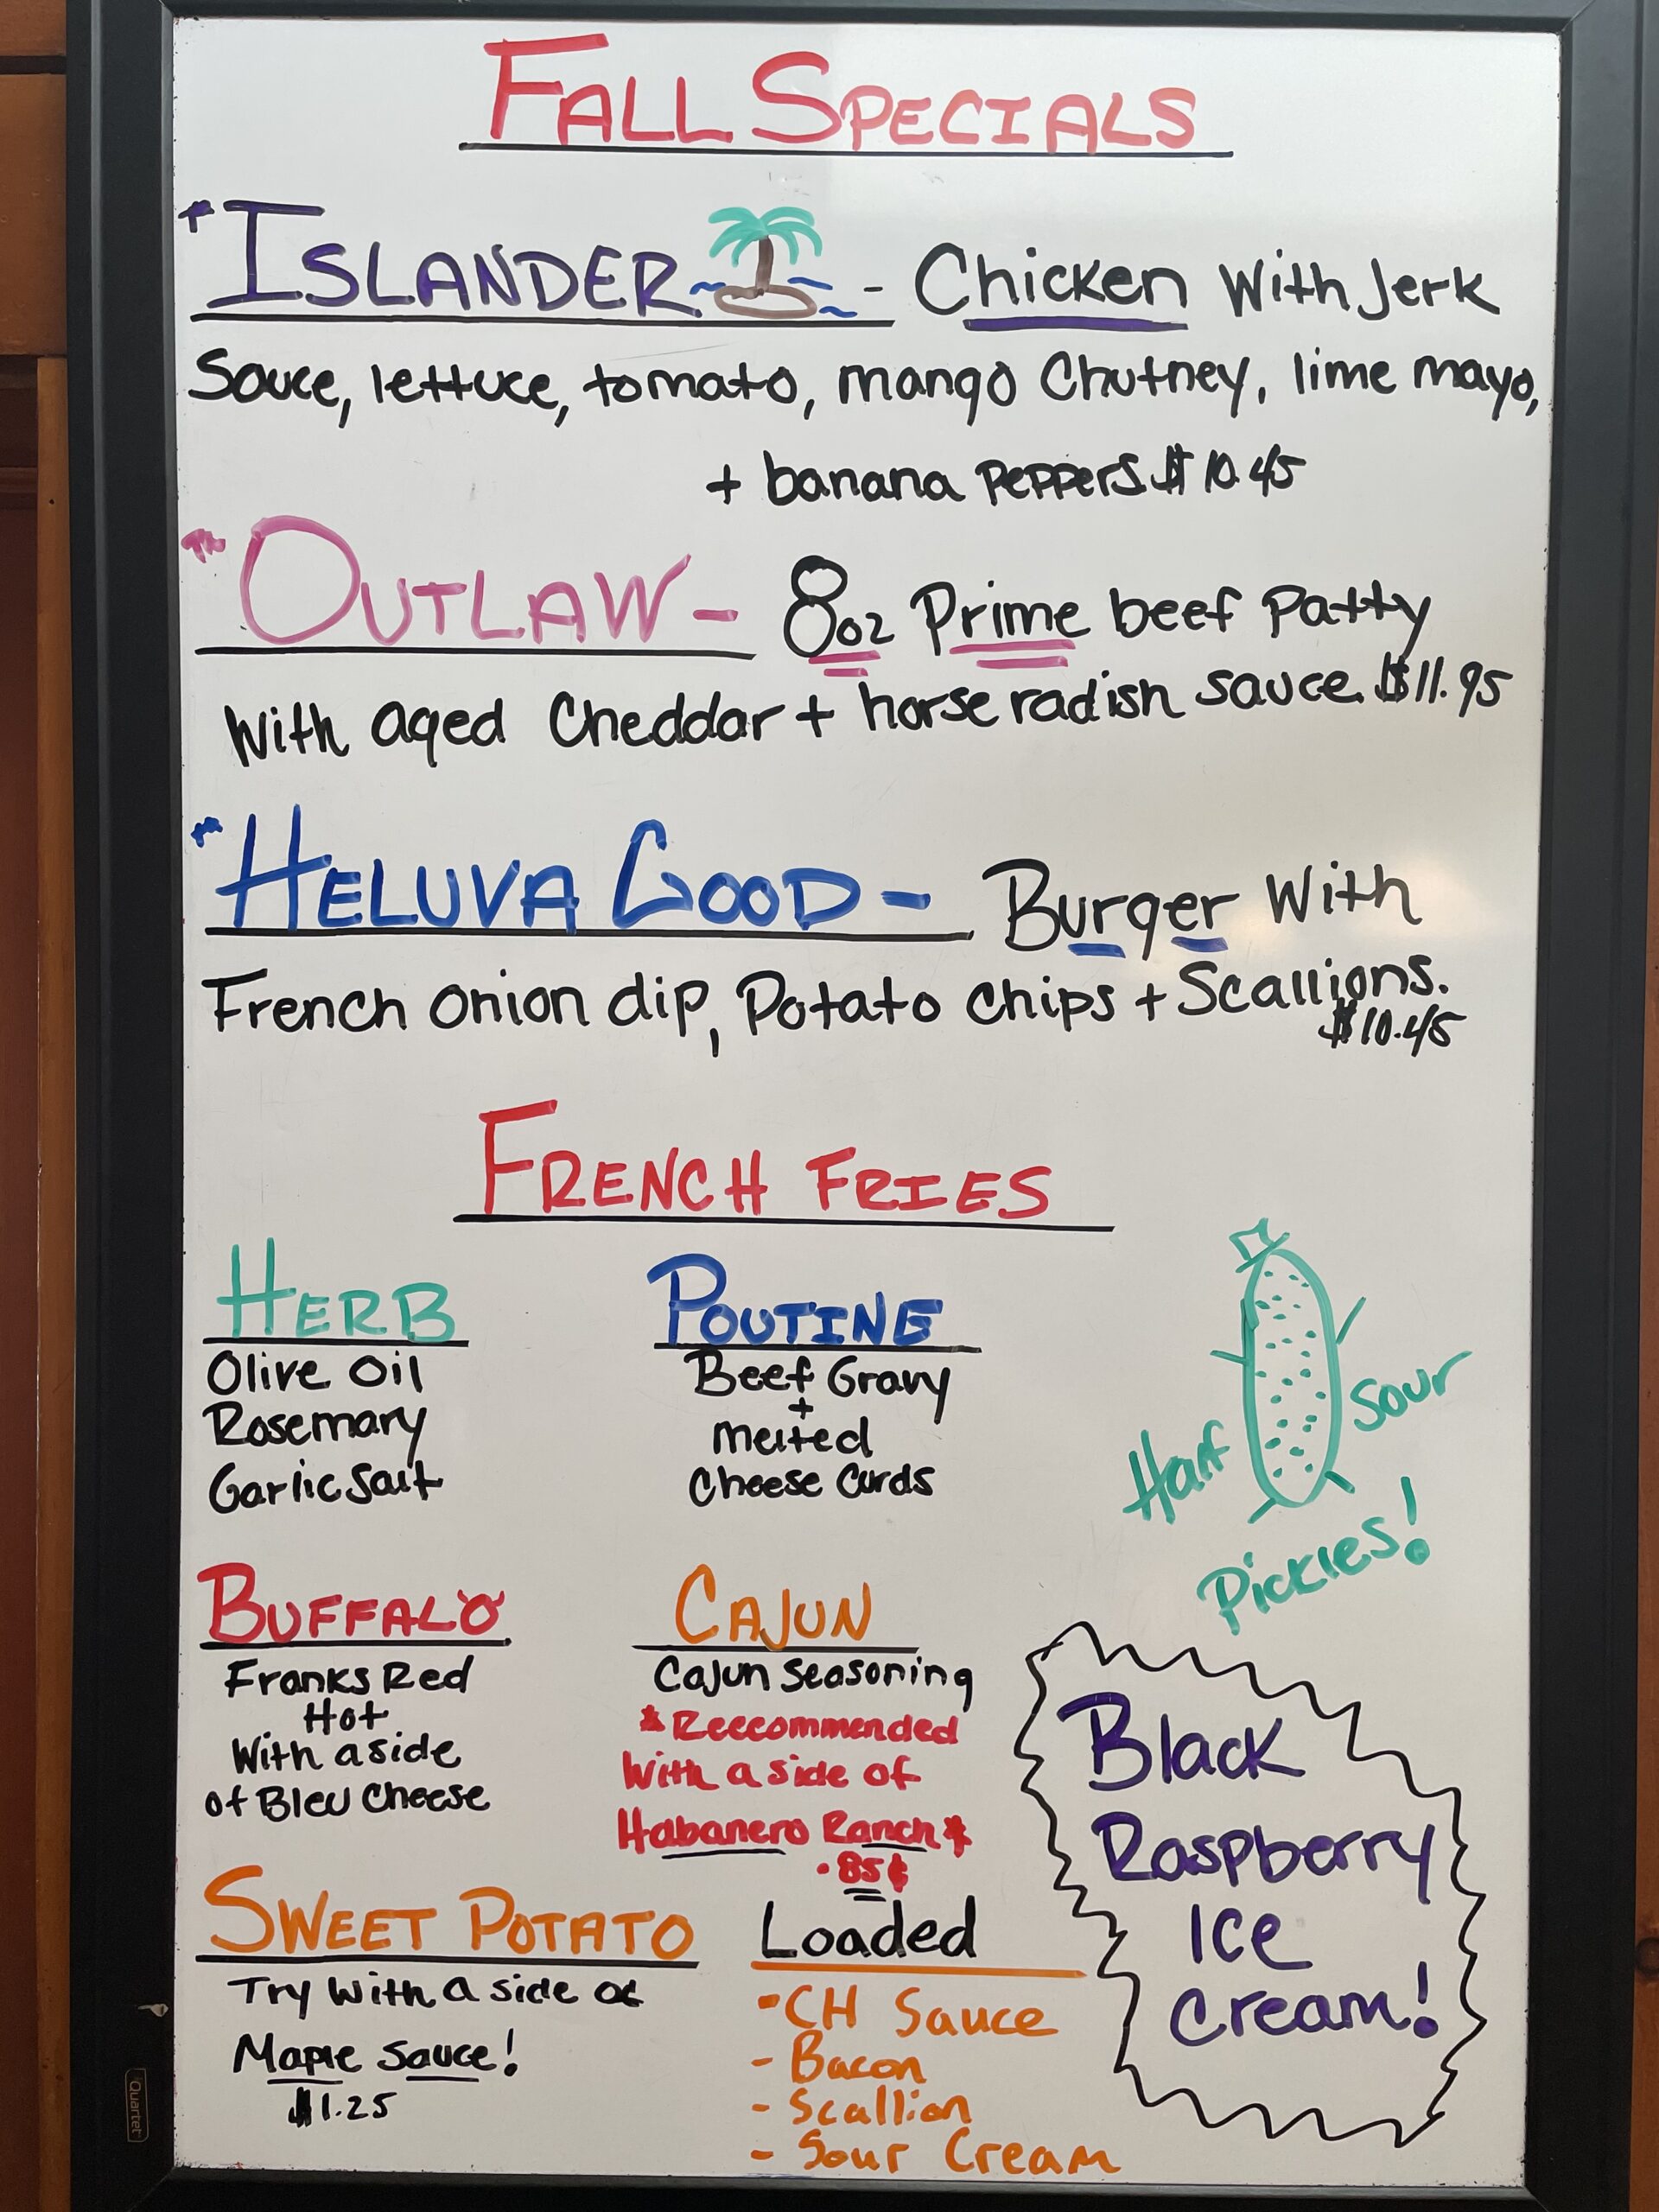 FALL SPECIALS
*ISLANDER - Chicken with Jerk
Sauce, lettuce, tomato, mango Chutney, lime mayo,
+ banana peppers. $10.45
*OUTLAW - 8oz Prime beef Patty
with aged Cheddar + horseradish sauce. $11.95
*HELUVA GOOD - Burger with
French onion dip, Potato chips + Scallions.
$10.45
FRENCH FRIES
HERB
Olive Oil
Rosemary
Garlic Salt
POUTINE
Beef Gravy
+
melted
Cheese Curds
Half Sour
Pickles!
BUFFALO
Franks Red
Hot
With a side
of Bleu Cheese
CAJUN
Cajun Seasoning
*Reecommended
With a side of
Habanero Ranch*
.85¢
SWEET POTATO
Try with a side of
Maple Sauce!
$1.25
Loaded
-CH Sauce
- Bacon
- Scallion
- Sour Cream
Black
Raspberry
Ice
Cream!
Quartet